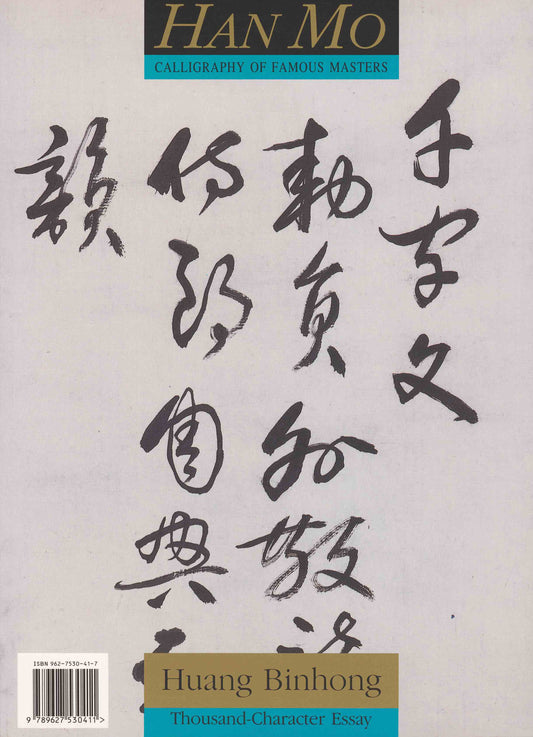 HAN MO
CALLIGRAPHY OF FAMOUS MASTERS
千字文
勅員外散
侍郎周興
韻
ISBN 962-7530-41-7
9 789627 530411 >
Huang Binhong
Thousand-Character Essay